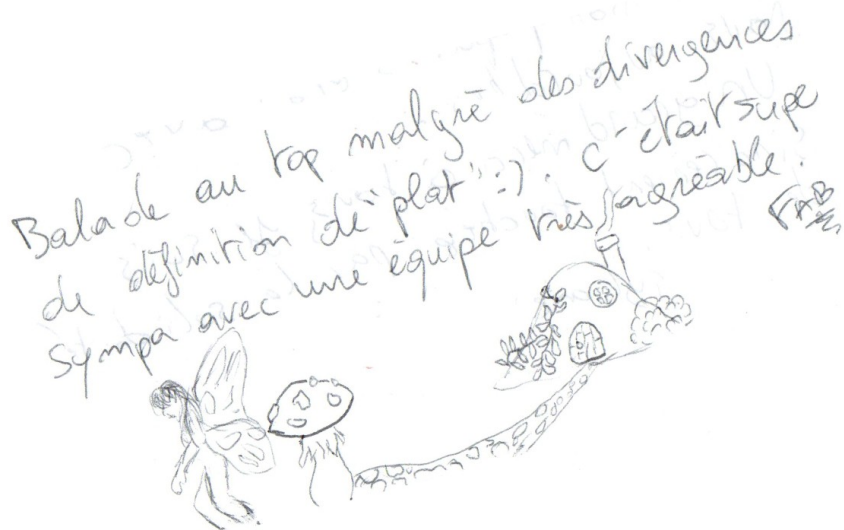 Balade au top malgré des divergences
de définition de "plat" :). C'était supe
sympa avec une équipe très agréable.
FAB